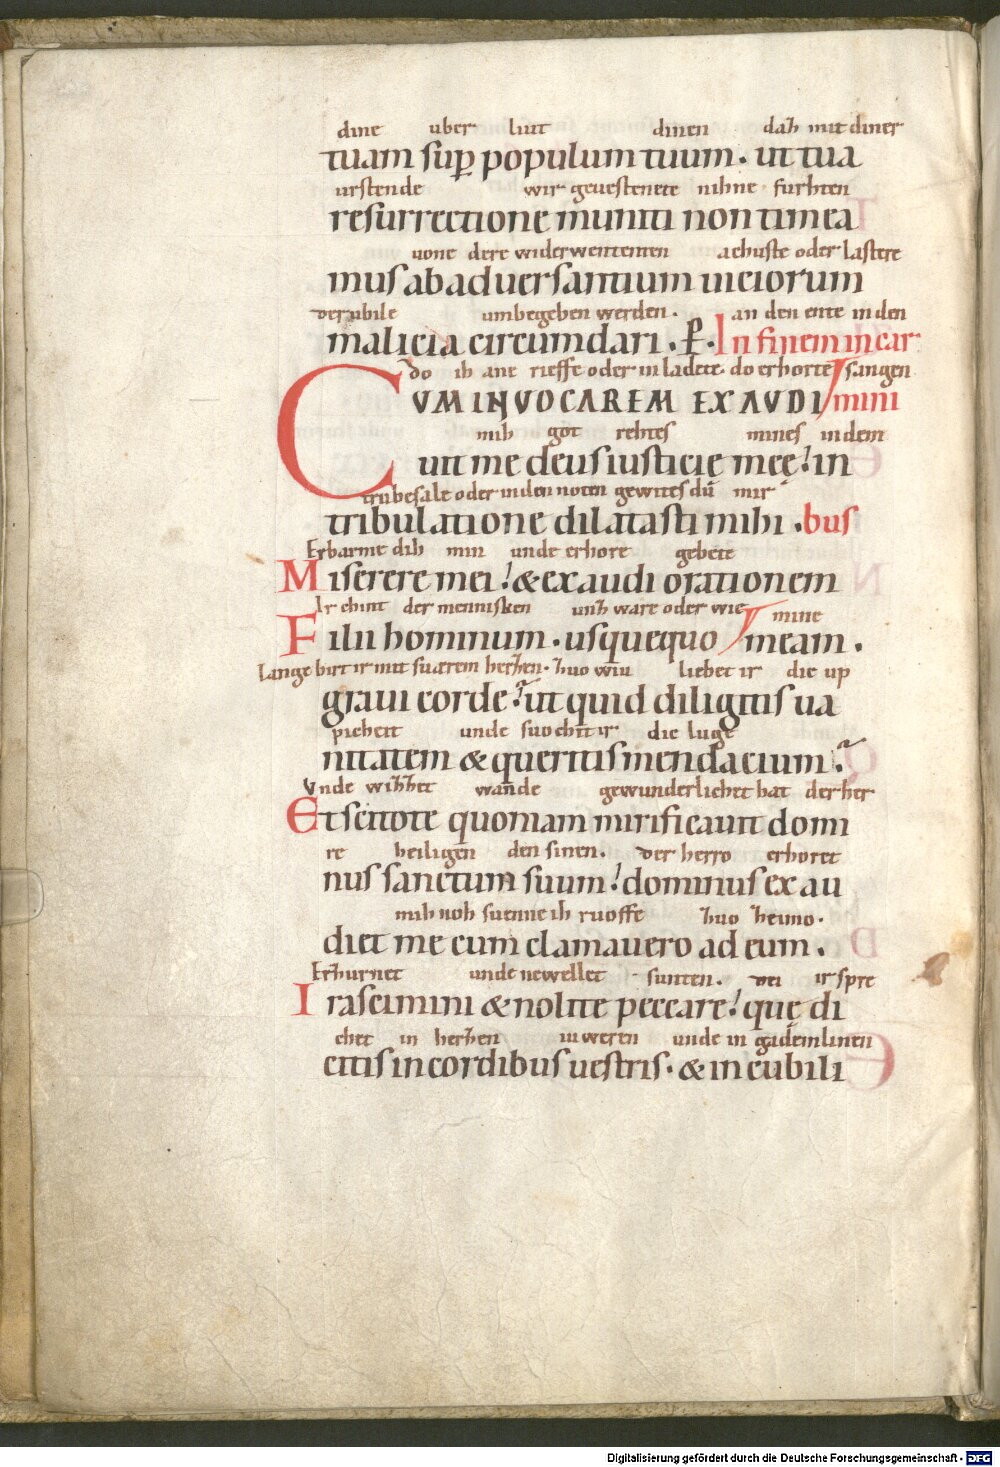 dine uber liut dinen daz mit diner
tuam sup̱ populum tuum. ut tua
urstende wir geuestenete nihne furhten
resurrectione muniti non timea
uone dere widerwertenten achuste oder lastere
mus ab aduersantium uiciorum
verubile umbegeben werden. an den ente in den
malicia circumdari. P. In finem in car
do ih ane rieffe oder in ladete. do erhorte sangen
CUM INVOCAREM EXAVDI mini
mih got rehtes mines in dem
uit me deus iusticię meę! in
trubesale oder in den noten gewites dū mir
tribulatione dilatasti mihi. bus
Erbarme dih min unde erhore gebete
Miserere mei! & exaudi orationem
Ir chint der mennisken unz ware oder wie mine
Filii hominum. usquequo meam.
Lange birt ir mit suarem herzen. zuo wiu liebet ir die up
graui corde? ut quid diligitis ua
picheit unde suochet ir die luge
nitatem & queritis mendacium?
Vnde wizzet wande gewunderlichet hat der her
Et scitote quoniam mirificauit domi
re heiligen den sinen. der herro erhoret
nus sanctum suum! dominus ex au
mih noh suenne ih ruoffe zuo heimo.
diet me cum clamauero ad eum.
Erzurnet unde newellet sunten. dei ir spre
Irascimini & nolite peccare! quę di
chet in herzen iuweren unde in gidemlinen
citis in cordibus uestris. & in cubili
Digitalisierung gefördert durch die Deutsche Forschungsgemeinschaft - DFG